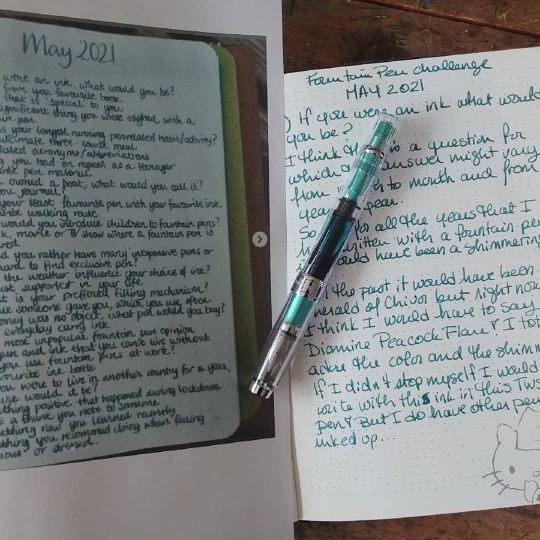 May 2021
were an ink, what would you be?
from your favourite book
that is special to you
significant thing you were signed with a
pen
is your longest running penrelated habit/activity?
ultimate three-course meal
lated acronyms/abbreviations
you had on repeat as a teenager
te pen material
owned a boat, what would you call it?
you journal?
your least favourite pen with your favourite ink,
rite walking route
would you introduce children to fountain pens?
k, movie or TV show where a fountain pen is
d you rather have many inexpensive pens or
hard to find exclusive pen?
the weather influence your choice of ink?
st supported in your life
t is your preferred filling mechanism?
someone gave you, which you use often
oney was no object, what pen would you buy?
everyday carry ink
most unpopular fountain pen opinion
pen and ink that you can't live without
you use fountain pens at work?
ink bottle
you were to live in another country for a year,
ere would it be?
ething positive that happened during lockdown
e a thank you note to someone
ething new you learned recently
ething you recommend doing when feeling
or stressed
Fountain Pen Challenge
MAY 2021
) If you were an ink what would
you be?
I think is a question for
which answer might vary
from to month and from
year year.
So for all the years that I
written with a fountain pen
would have been a shimmering
the past it would have been
Emerald of Chivor but right now
I think I would have to say
Diamine Peacock Flare I tot
adore the color and the shimm
If I didn't stop myself I would
write with this ink in this TWS
pen But I do have other pen
inked up...